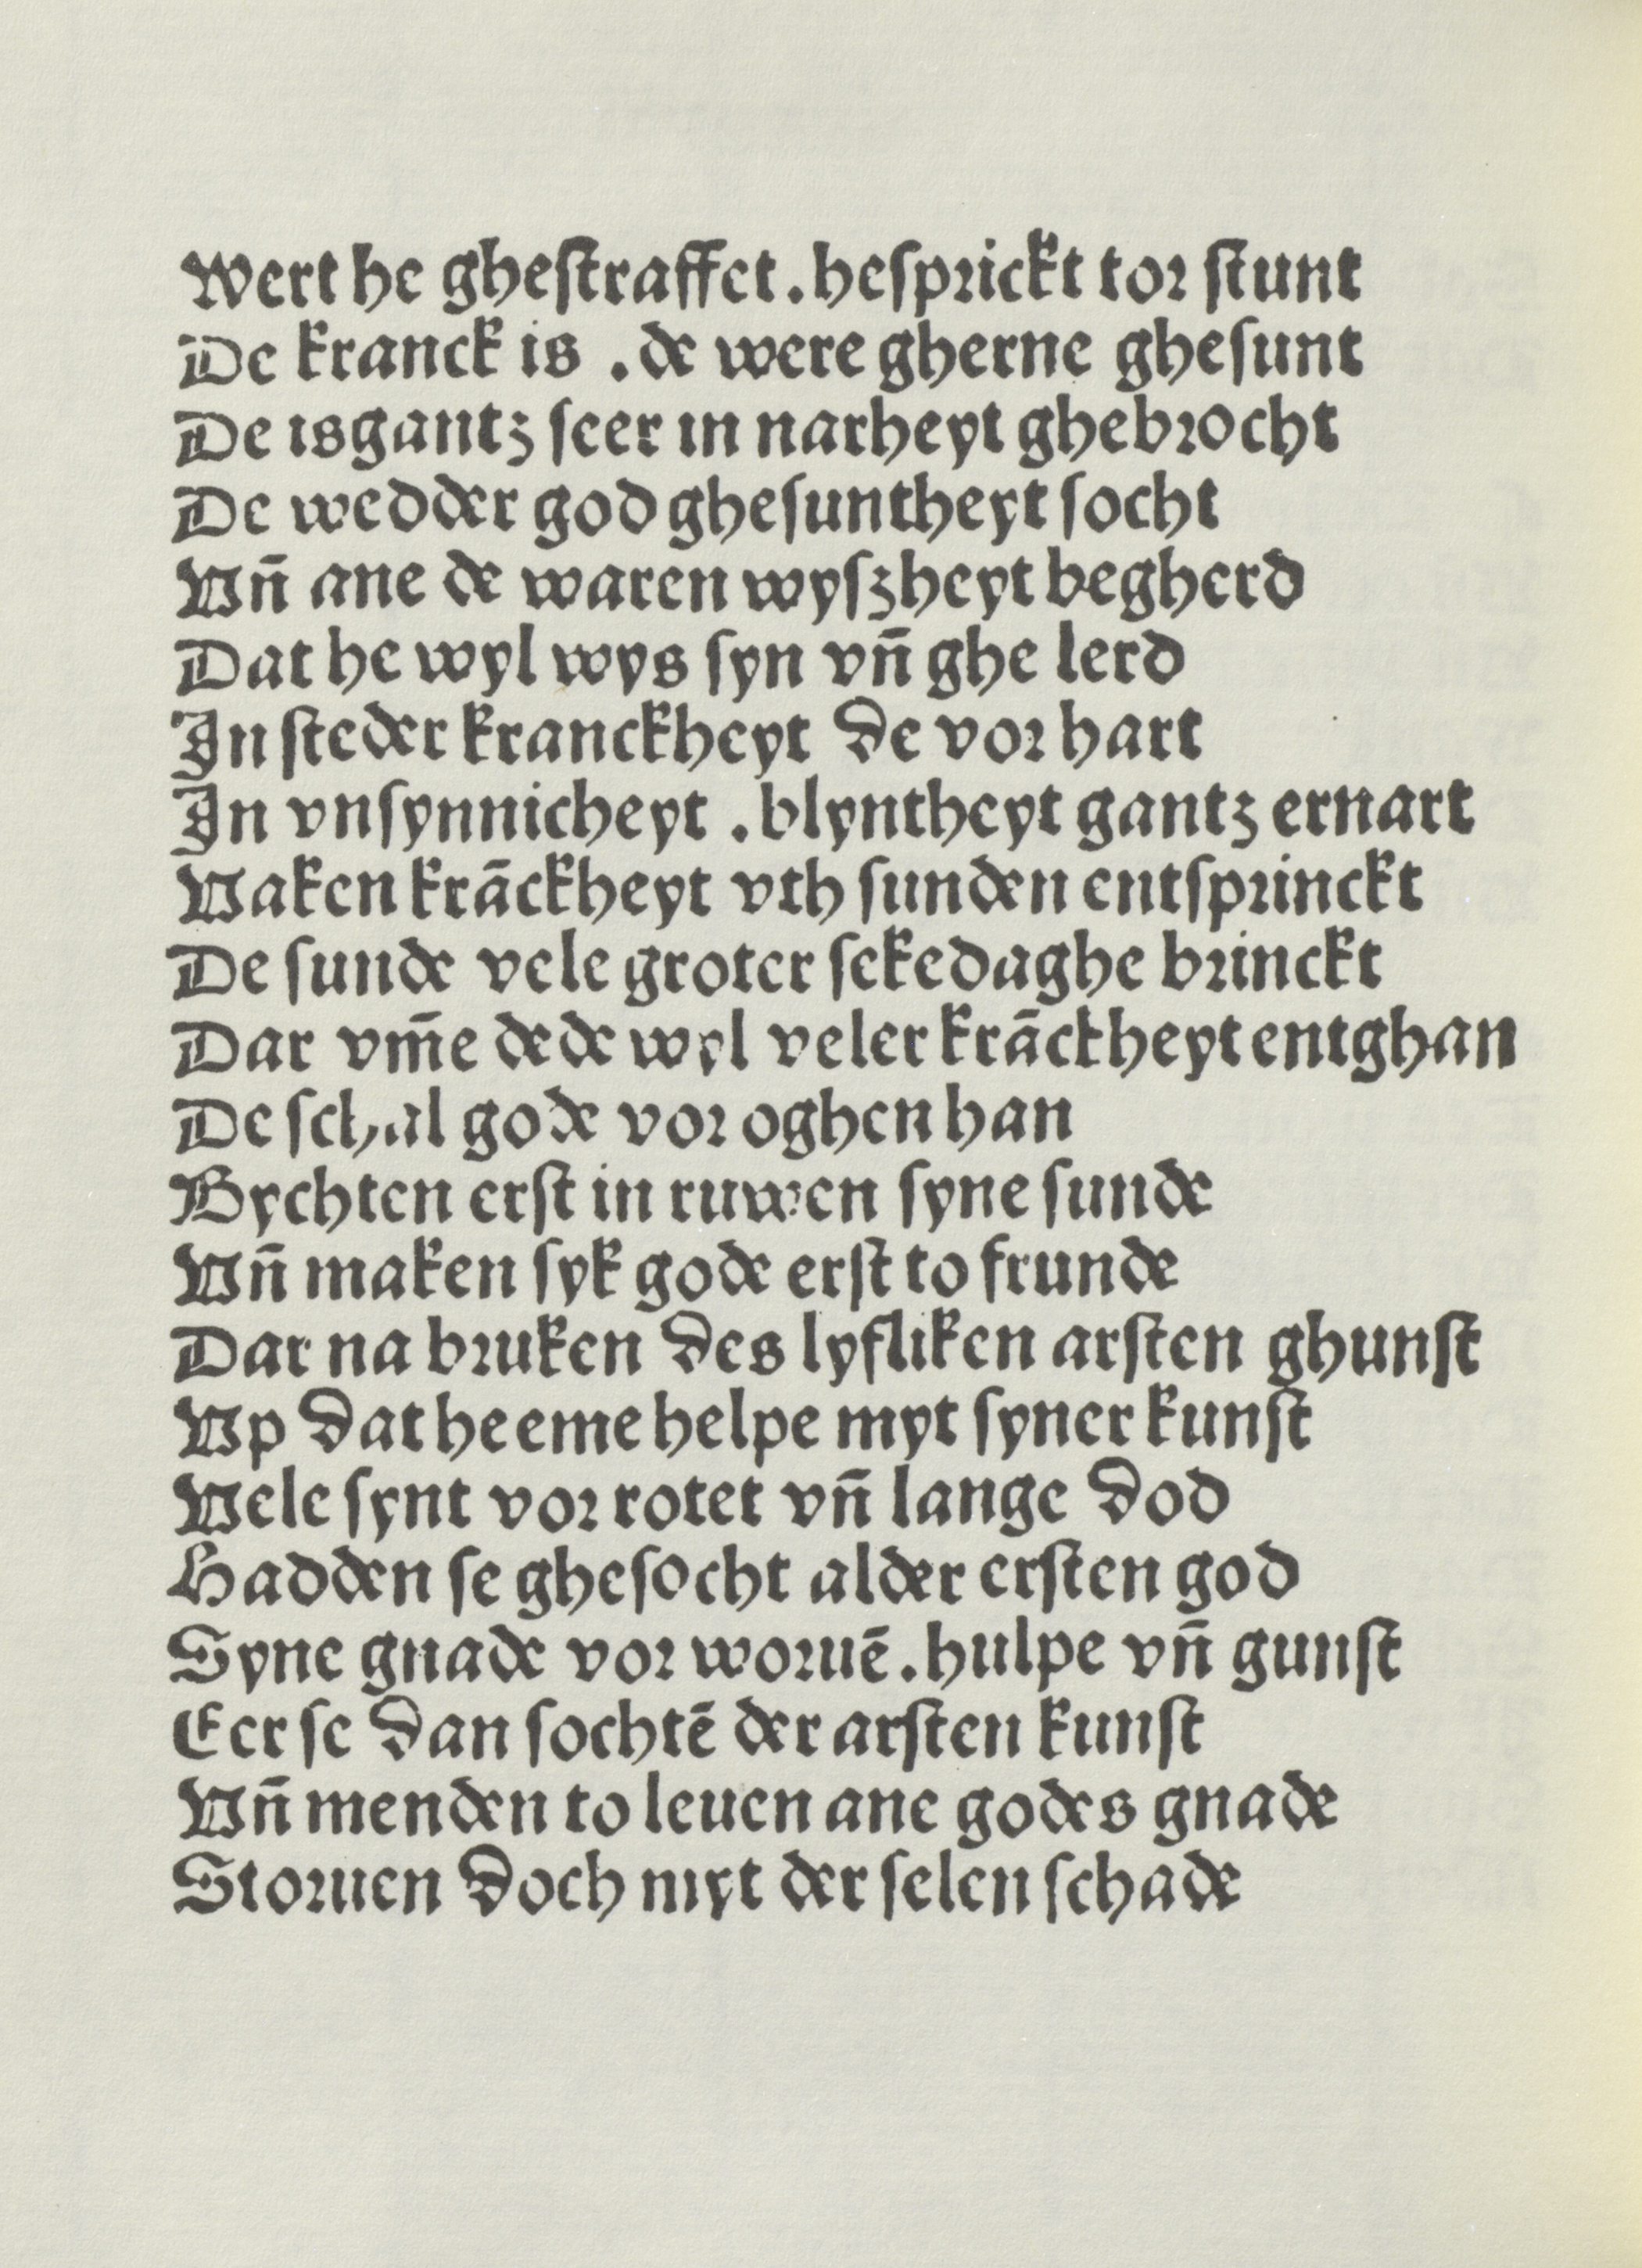 Wert he gheſtraffet. heſprickt tor ſtunt
De kranck is . de were gherne gheſunt
De isgantz ſeer in narheyt ghebrocht
De wedder god gheſuntheyt ſocht
Vn̄ ane de waren wyſzheyt begherd
Dat he wyl wys ſyn vn̄ ghe lerd
In ſteder kranckheyt de vor hart
In vnſynnicheyt . blyntheyt gantz ernart
Vaken krāckheyt vth ſunden entſprinckt
De ſunde vele groter ſekedaghe brinckt
Dar vm̄e dede wyl veler krāckheyt entghan
De ſchal gode vor oghen han
Bychten erſt in ruwen ſyne ſunde
Vn̄ maken ſyk gode erſt to frunde
Dar na bruken des lyfliken arſten ghunſt
Vp dat he eme helpe myt ſyner kunſt
Vele ſynt vor rotet vn̄ lange dod
Hadden ſe gheſocht alder erſten god
Syne gnade vor woruē. hulpe vn̄ gunſt
Eer ſe dan ſochtē der arſten kunſt
Vn̄ menden to leuen ane godes gnade
Storuen doch myt der ſelen ſchade